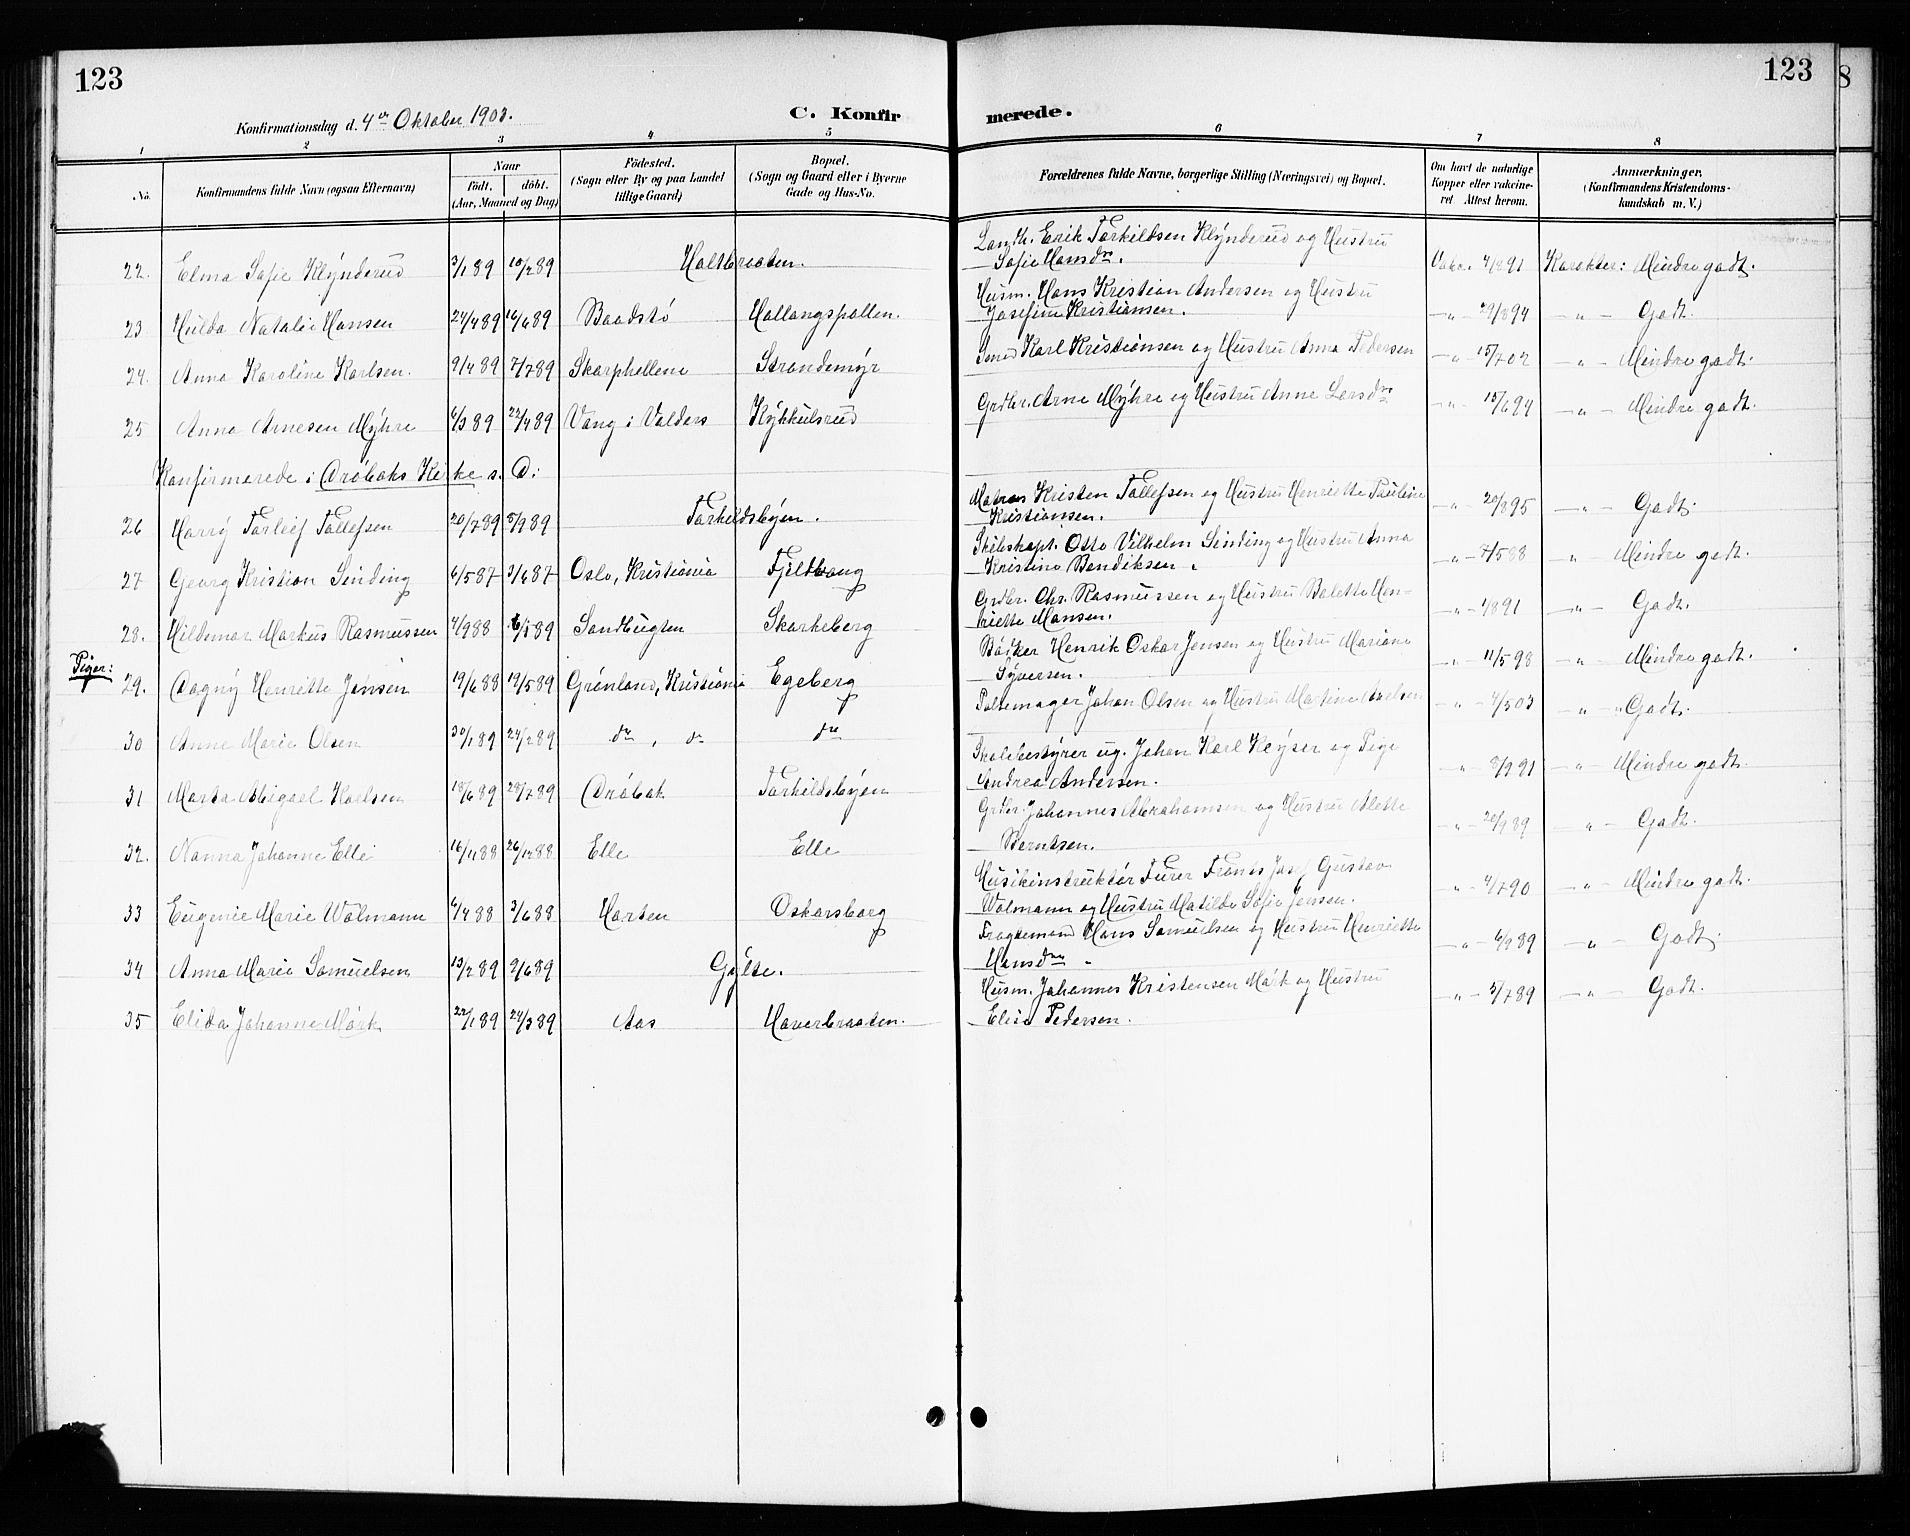 123
123
8
Konfirmationsdag d. 4de Oktober 1903.
C. Konfir
merede.
1 2 3 4 5 6 7 8
No.
Konfirmandens fulde Navn (ogsaa Efternavn)
Naar
födt.
döbt.
(Aar, Maaned og Dag)
Födested.
(Sogn eller By og paa Landet
tillige Gaard)
Bopæl.
(Sogn og Gaard eller i Byerne
Gade og Hus-No.
Forældrenes fulde Navne, borgerlige Stilling (Næringsvei) og Bopæl.
Om havt de naturlige
Kopper eller vakcine-
ret Attest herom.
Anmærkninger,
(Konfirmandens Kristendoms-
kundskab m. V.)
22. Elma Sofie Klynderud 3/1 89 10/2 89 Holtbraaten. Landh. Erik Torkildsen Klynderud og Hustru
Sofie Hansdr. Vakc. 4/8 91 Karakter: Mindre godt.
23 Hulda Natalie Hansen 24/4 89 16/6 89 Baadstö Hallangspollen. Husm. Hans Kristian Andersen og Hustru
Josefine Kristiansen. — " — 29/8 94 — " — Godt.
24. Anna Karoline Karlsen. 9/4 89 7/7 89 Skarphellene Strandemyr Smed Karl Kristiansen og Hustru Anna Pedersen — " — 15/7 02 — " — Mindre godt.
25 Anna Arnesen Myhre 6/3 89 22/4 89 Vang i Valders Kykkulsrud Grdbr. Arne Myhre og Hustru Anne Larsdr — " — 15/6 94 — " — Mindre godt.
Konfirmerede i Dröbaks Kirke s. D:
26 Harry Torleif Tollefsen 20/7 89 5/9 89 Torkildsbyen. Matros Kristen Tollefsen og Hustru Henriette Pauline
Kristiansen. — " — 20/8 95 — " — Godt.
27 Georg Kristian Sinding 6/5 87 3/6 87 Oslo, Kristiania Fjeldvang Skibskapt. Otto Vilhelm Sinding og Hustru Anna
Kristine Bendiksen. " — 7/5 88 " Mindre godt.
28. Hildemar Markus Rasmussen 4/9 88 6/1 89 Sandbugten Skorkeberg Grdbr. Chr. Rasmussen og Hustru Bolette Hen-
riette Hansen. — " — 1/8 91 — " — Godt.
Piger:
29. Dagny Henriette Jensen 19/6 88 19/5 89 Grönland, Kristiania Egeberg Böcker Henrik Oskar Jensen og Hustru Mariane
Syversen. — " — 11/5 98 — " — Mindre godt.
30 Anne Marie Olsen 30/1 89 24/2 89 do, do do Paltemager Johan Olsen og Hustru Martine Axelsen — " — 4/5 03 — " — Godt.
31 Marta Abigael Karlsen 18/6 89 28/7 89 Dröbak Torkildsbyen Skolebestyrer ug. Johan Karl Keyser og Pige
Andrea Andersen. " — 8/9 91 — " — Mindre godt.
32. Nanna Johanne Elle 16/11 88 26/12 88 Elle Elle Grdbr. Johannes Abrahamsen og Hustru Alette
Berntsen. " — 20/9 89 " — Godt.
33 Eugenie Marie Wolmann 6/4 88 3/6 88 Horten Oskarsborg Musikinstruktör Furer Frants Josef Gustav
Wolmann og Hustru Matilde Sofie Jensen. " — 4/7 90 — " — Mindre godt.
34 Anna Marie Samuelsen 13/2 89 9/6 89 Gylte. Fragtemand Hans Samuelsen og Hustru Henriette
Hansdr. — " — 6/9 89 — " Godt.
35 Elida Johanne Mörk 22/1 89 24/3 89 Aas Haverbraaten. Husm. Johannes Kristensen Mörk og Hustru
Elise Pedersen. — " — 3/7 89 — " — Godt.